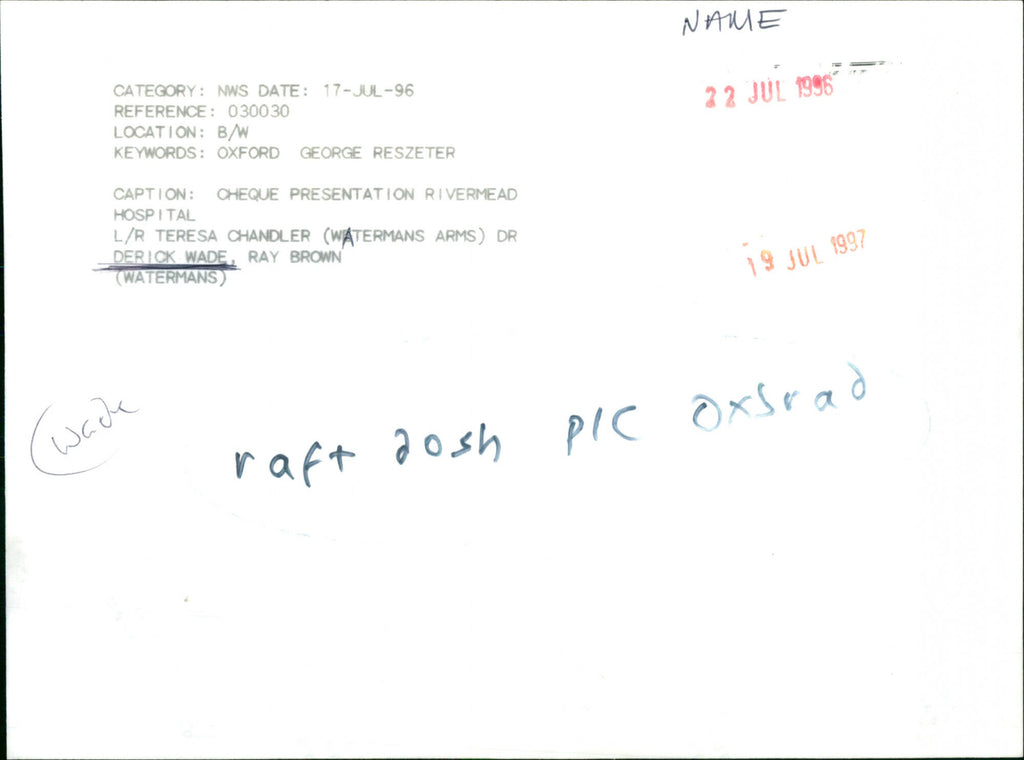 NAME
CATEGORY: NWS DATE: 17-JUL-96
22 JUL 1996
REFERENCE: 030030
LOCATION: B/W
KEYWORDS: OXFORD GEORGE RESZETER
CAPTION: CHEQUE PRESENTATION RIVERMEAD
HOSPITAL
L/R TERESA CHANDLER (WATERMANS ARMS) DR
DERICK WADE, RAY BROWN
(WATERMANS)
19 JUL 1997
Wade
raft dosh pic Oxsrad